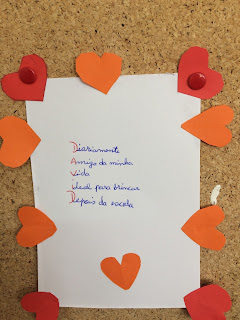 Diariamente
Amigo da minha
Vida
Uedi para brincar
Depois da escola